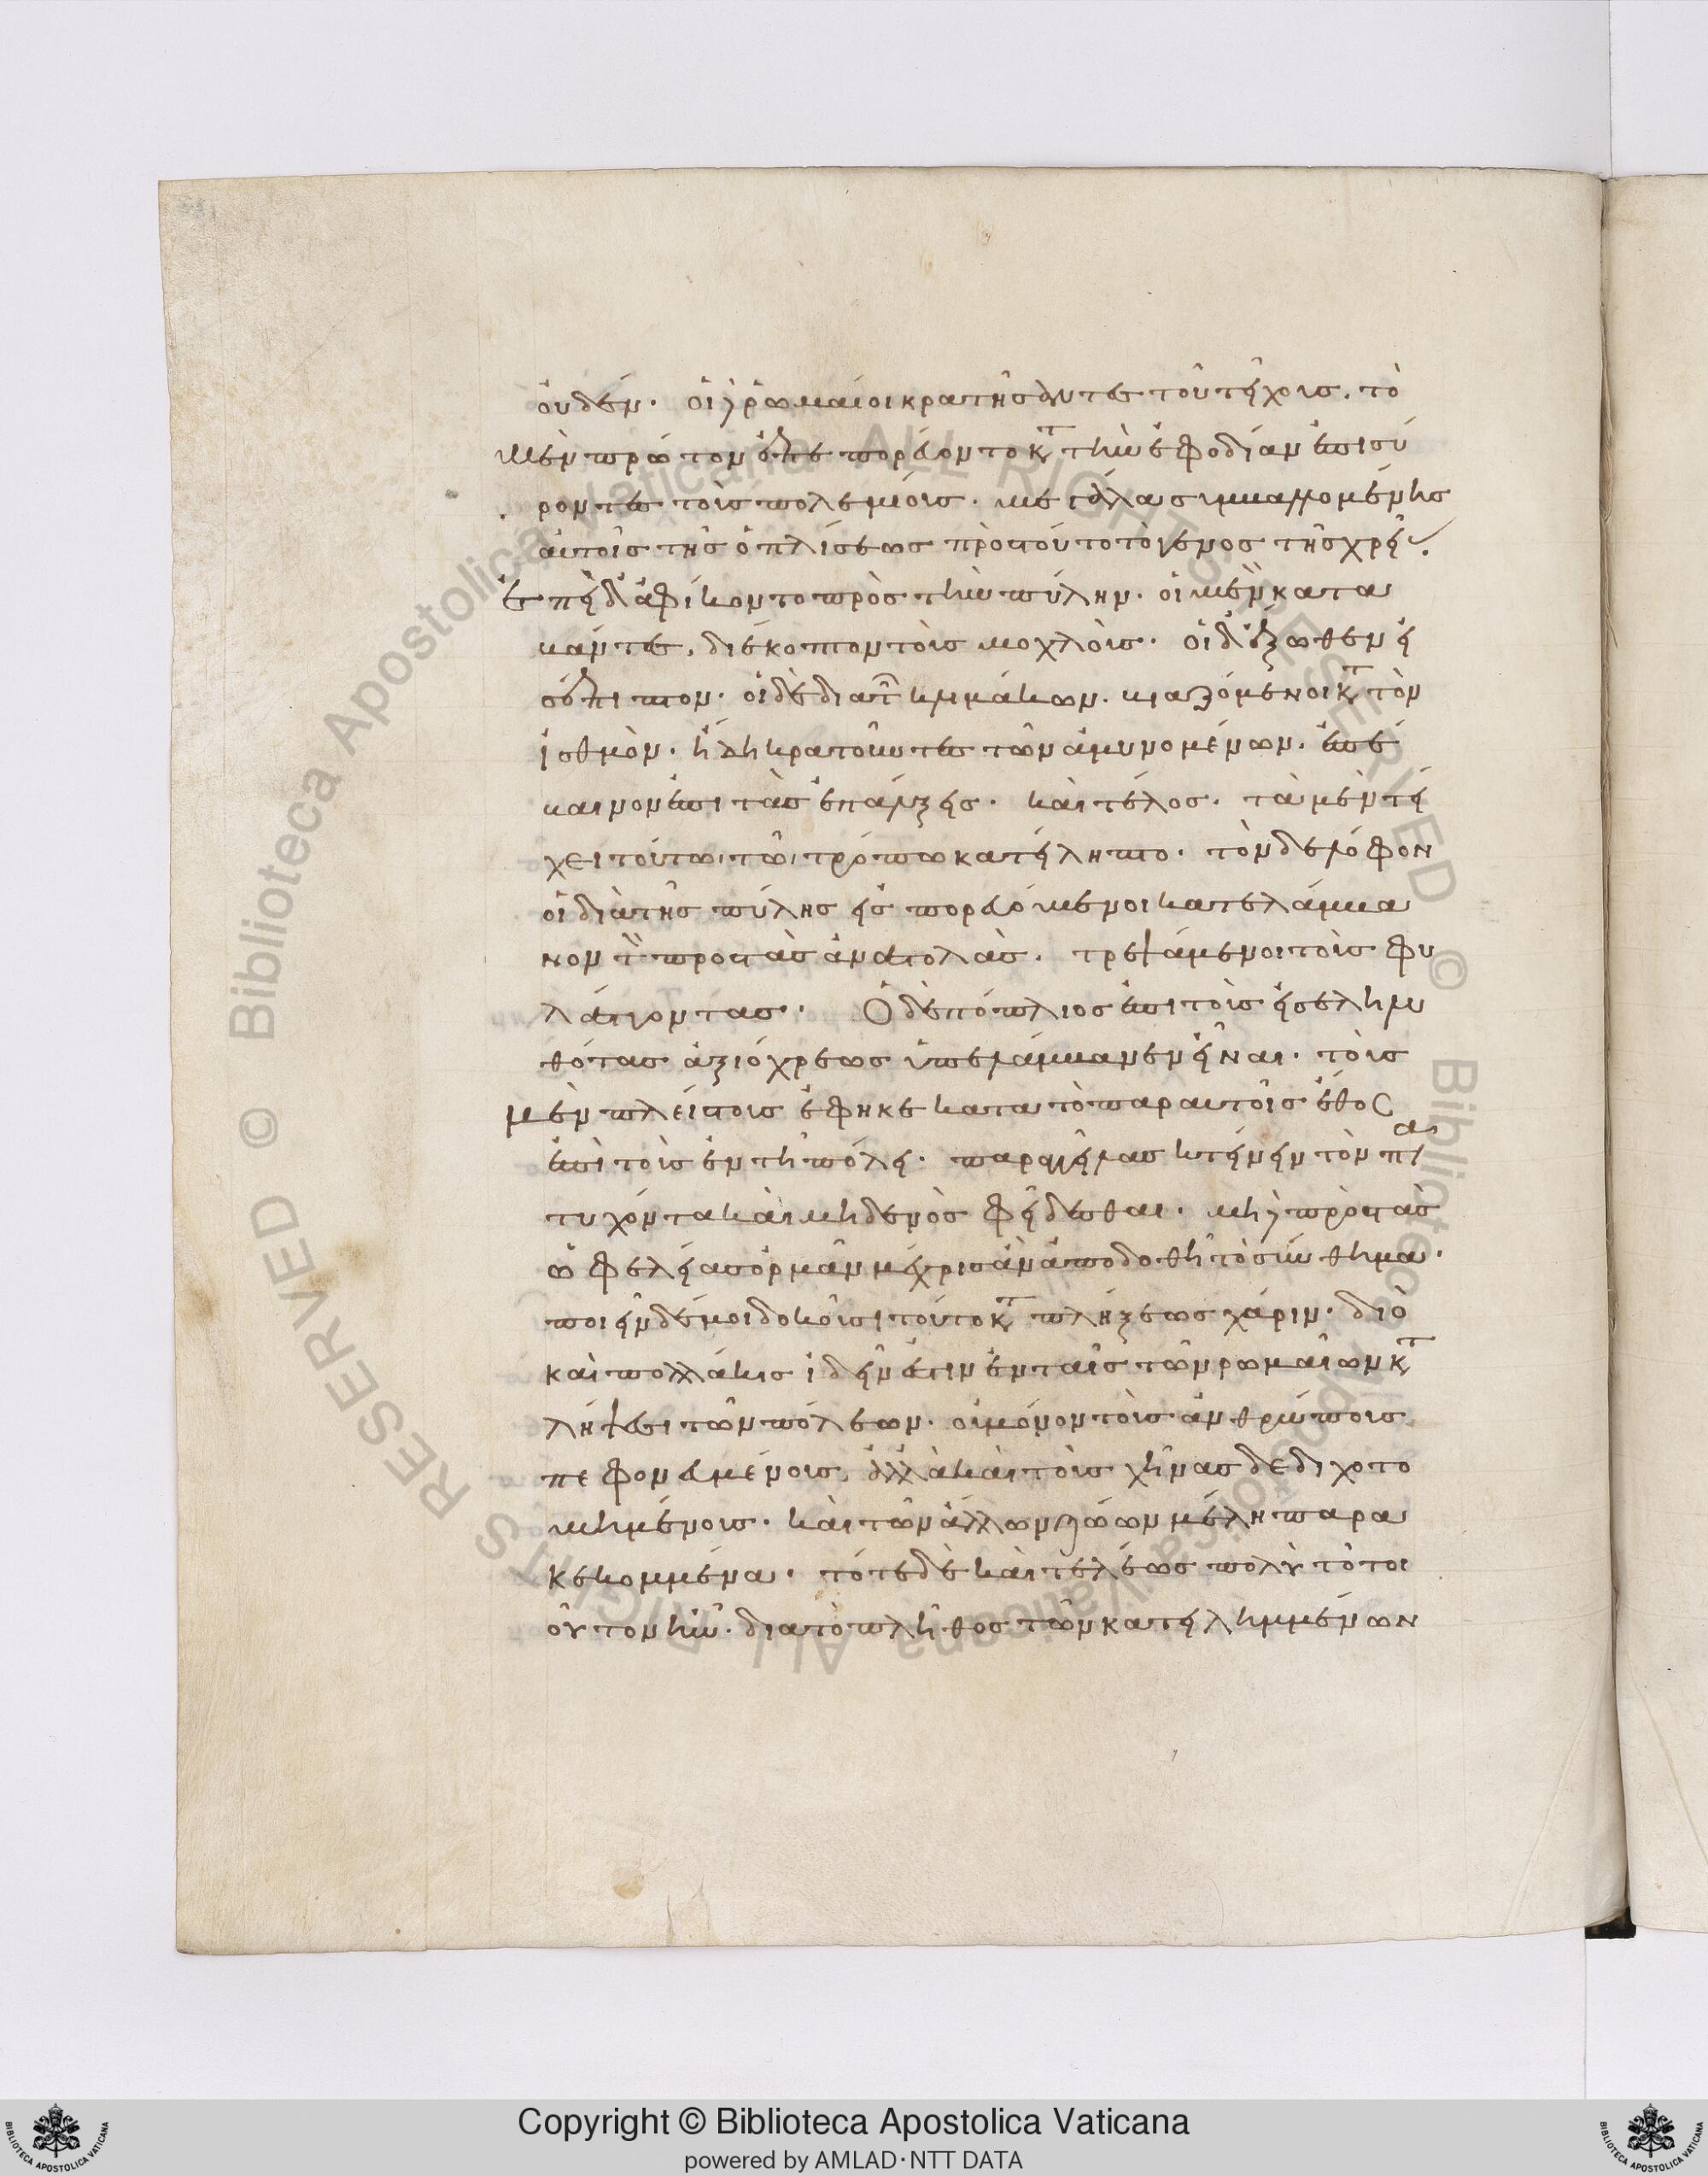 οὐδέν. οἱ γὰρ ῥωμαῖοι κρατήσαντες τοῦ τείχους. τὸ
μὲν πρῶτον ἐπεπορεύοντο κατὰ τὴν ἐφοδίαν ἐπισύ
ροντες τοὺς πολεμίους. μεγάλα συμβαλλομένης
αὐτοῖς τῆς ὁπλίσεως πρὸς τοῦτο τὸ γένος τῆς χρεί
ἐπεὶ δ' ἀφίκοντο πρὸς τὴν πύλην. οἱ μὲν κατα
βάντες, διέκοπτον τοὺς μοχλούς. οἱ δ' ἔξωθεν εἰ
σέπιπτον. οἱ δὲ διὰ τῶν κλιμάκων. βιαζόμενοι κατὰ τὸν
ἰσθμὸν. ἤδη κρατοῦντες τῶν ἀμυνομένων. ἐπέ
βαινον ἐπὶ τὰς ἐπάλξεις. καὶ τέλος. τὸ μὲν τεῖ
χει τούτω τῶ τρόπω κατείληπτο. τὸν δὲ λόφον
οἱ διὰ τῆς πύλης εἰσπορευόμενοι κατελάμβα
νον τὸν πρὸς τὰς ἀνατολὰς. τρεψάμενοι τοὺς φυ
λάττοντας. Ὁ δὲ πόπλιος ἐπεὶ τοὺς εἰσεληλυ
θότας ἀξιόχρεως ὑπελάμβανεν εἶναι. τοὺς
μὲν πλείστους ἐφῆκε κατὰ τὸ παρ αὐτοῖς ἔθος
ἐπὶ τοὺς ἐν τῆ πόλει. παραγγείλας κτείνειν τὸν πα
τυχόντα καὶ μηδενὸς φείδεσθαι. μηδὲ πρὸς τὰς
ὠφελείας ὁρμᾶν μέχρις ἂν ἀποδοθῆ τὸ σύνθημα.
ποιεῖν δέ μοι δοκοῦσι τοῦτο καταπλήξεως χάριν. διὸ
καὶ πολλάκις ἰδεῖν ἔστιν ἐν ταῖς τῶν ρωμαίων κατα
λήψεσι τῶν πόλεων. οὐ μόνον τοὺς ἀνθρώπους
πεφονευμένους, ἀλλὰ καὶ τοὺς κύνας δεδιχοτο
μημένους. καὶ τῶν ἄλλων ζώων μέλη παρα
κεκομμένα. τότε δὲ καὶ τελέως πολὺ τὸ τοι
οῦτον ἦν. διὰ τὸ πλῆθος τῶν κατειλημμένων
Copyright © Biblioteca Apostolica Vaticana
powered by AMLAD·NTT DATA